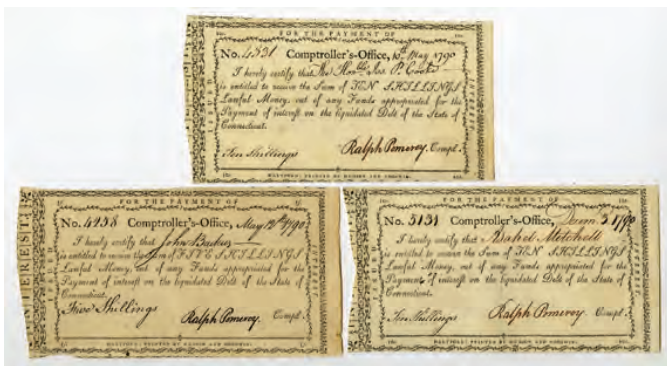 FOR THE PAYMENT OF
No. 4531 Comptroller's-Office, 10th May 1790
I hereby certify that The Honble Jos. P. Cooke
is entitled to receive the Sum of TEN SHILLINGS
Lawful Money, out of any Funds appropriated for the
Payment of interest on the liquidated Debt of the State of
Connecticut.
Ten Shillings Ralph Pomeroy. Compt.
HARTFORD: PRINTED BY HUDSON AND GOODWIN.
ISSUED
INTEREST
FOR THE PAYMENT OF
No. 4238 Comptroller's-Office, May 12th 1790
I hereby certify that John Backus
is entitled to receive the Sum of FIVE SHILLINGS
Lawful Money, out of any Funds appropriated for the
Payment of interest on the liquidated Debt of the State of
Connecticut.
Five Shillings Ralph Pomeroy. Compt.
HARTFORD: PRINTED BY HUDSON AND GOODWIN.
INTEREST
ISSUED
FOR THE PAYMENT OF
No. 5131 Comptroller's-Office, 3. 1790
I hereby certify that Mitchell
is entitled to receive the Sum of TEN SHILLINGS
Lawful Money, out of any Funds appropriated for the
Payment of interest on the liquidated Debt of the State of
Connecticut.
Ten Shillings Ralph Pomeroy. Compt.
HARTFORD: PRINTED BY HUDSON AND GOODWIN.
ISSUED
INTEREST